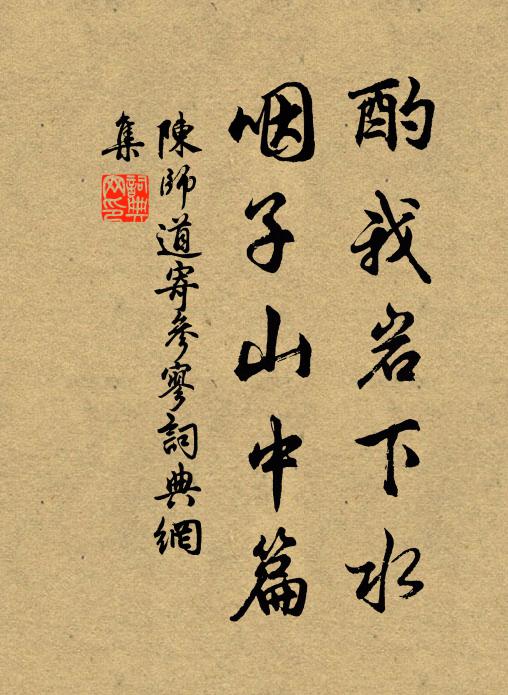 酌我岩下水
咽子山中篇
陳師道寄參寥詞典網
集
詞典